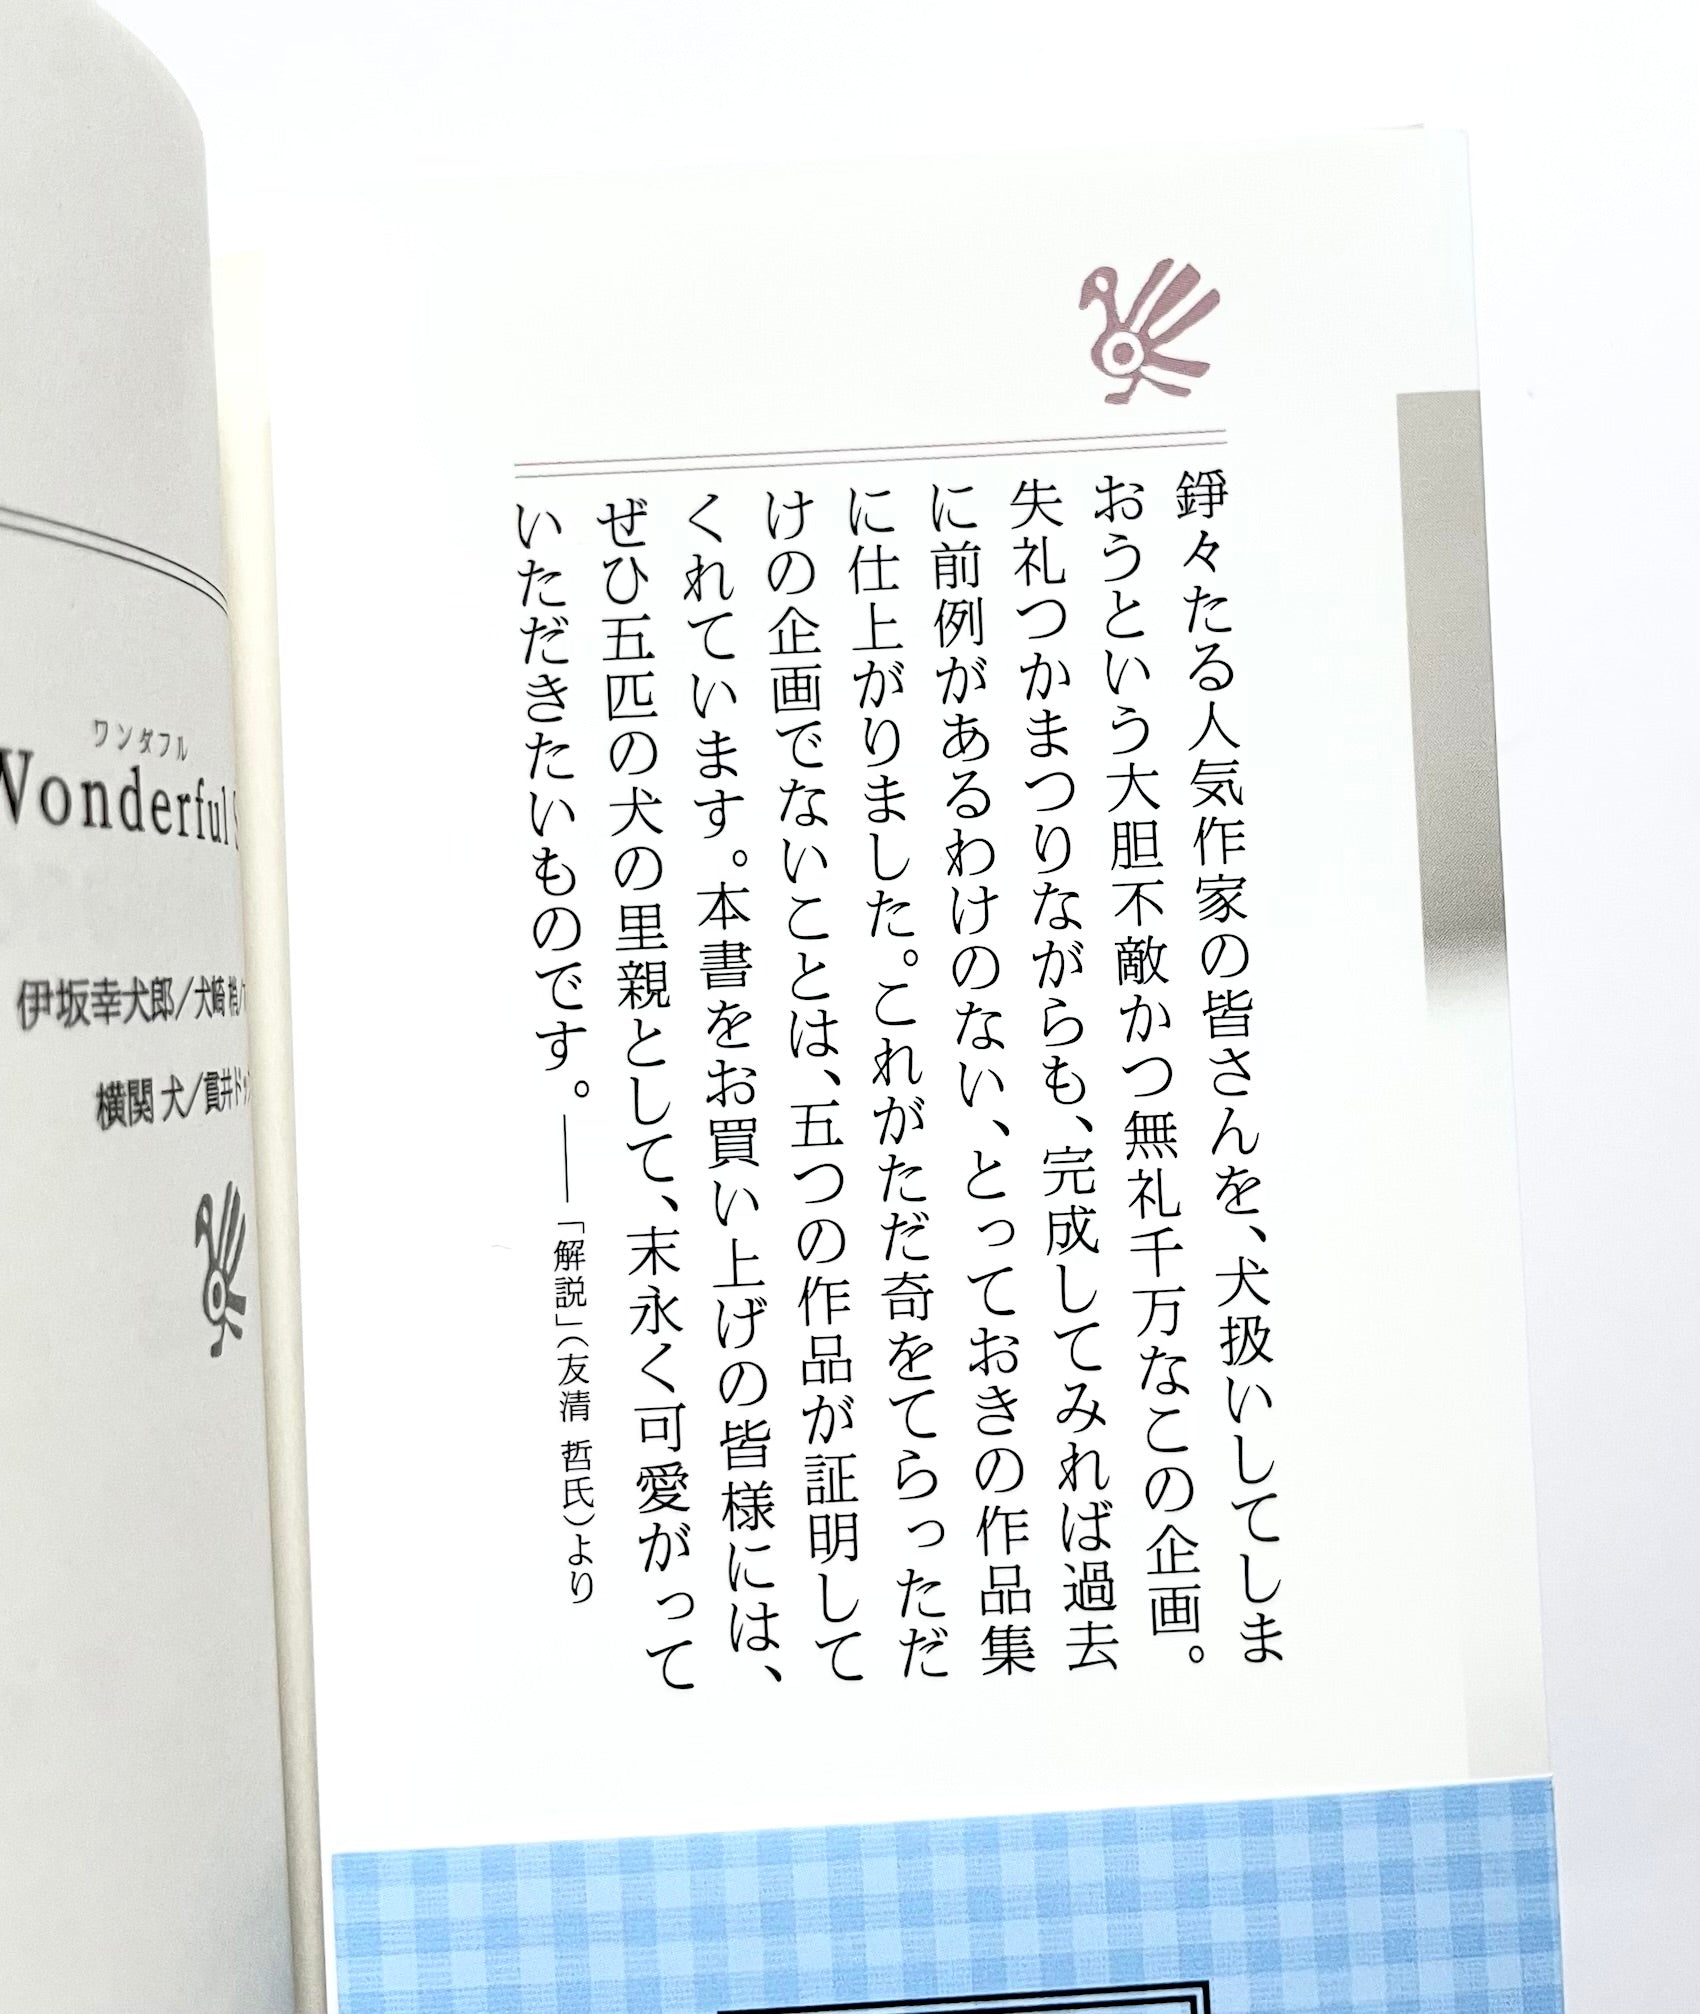 錚々たる人気作家の皆さんを、犬扱いしてしま
おうという大胆不敵かつ無礼千万なこの企画。
失礼つかまつりながらも、完成してみれば過去
に前例があるわけのない、とっておきの作品集
に仕上がりました。これがただ奇をてらっただ
けの企画でないことは、五つの作品が証明して
くれています。本書をお買い上げの皆様には、
ぜひ五匹の犬の里親として、末永く可愛がって
いただきたいものです。――「解説」(友清 哲氏)より
ワンダフル
Wonderful
伊坂幸犬郎/犬崎 梢/
横関 犬/貫井ドッ